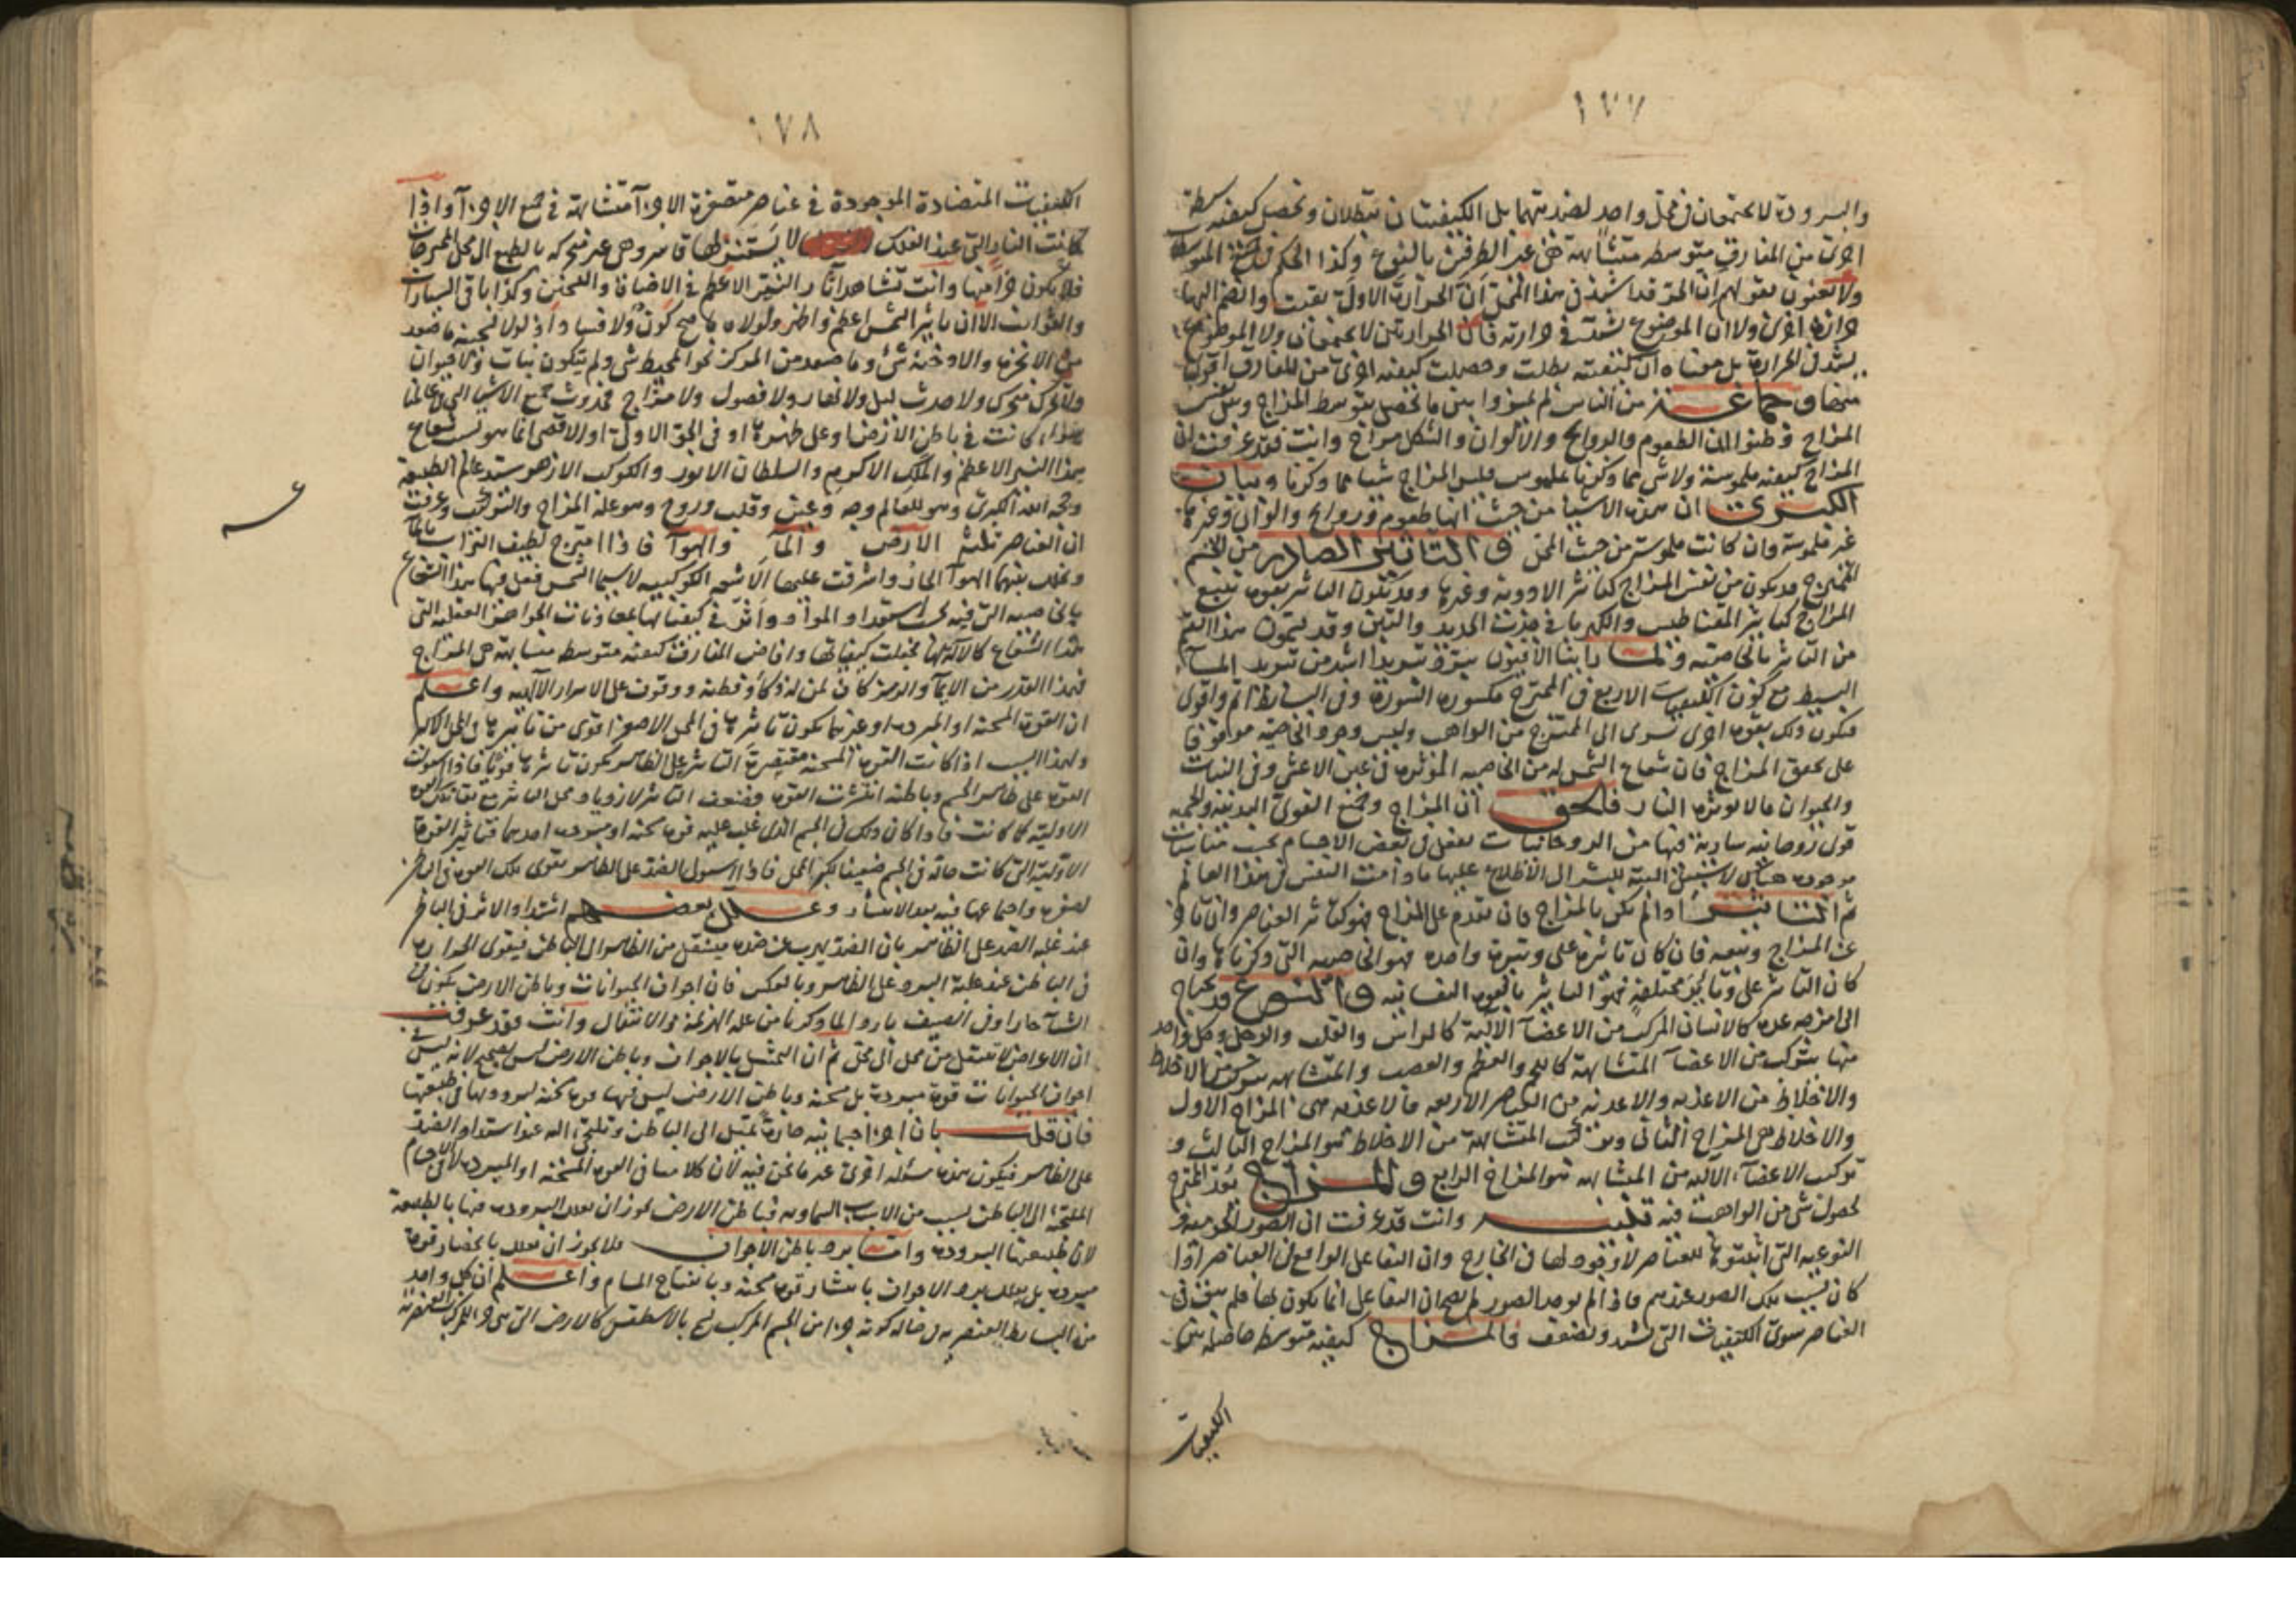 ١٧٧
والبرودة لا يجتمعان في محل واحد لضديتهما بل الكيفيتان تبطلان وتحصل كيفية متوسطة
اخرى من المفارق متوسطة متشابهة غير الطرفين بالنوع وكذا الحكم في
ولا يعنون بقولهم ان الحر قد اشتد في هذا المحل ان الحرارة الاولى بقيت وانضم اليها
حرارة اخرى ولا ان الموضوع يشتد في حرارته فان الحرارتين لا يجتمعان ولا الموضوع
يشتد في الحرارة بل معناه ان كيفيته بطلت وحصلت كيفية اخرى من المفارق اقوى
منها وجماعة من الناس لم يميزوا بين ما يحصل بتوسط المزاج وبين نفس
المزاج فظنوا ان الطعوم والروايح والالوان والشكل مزاج وانت فقد عرفت ان
المزاج كيفية ملموسة ولا شي مما ذكرنا بملموس فليس المزاج شيا مما ذكرنا وبيانه
الكبرى ان هذه الاشيا من حيث انها طعوم وروايح والوان وغيرها
غير ملموسة وان كانت ملموسة من حيث المحل والتاثير الصادر من الجسم
الممتزج قد يكون من نفس المزاج كتاثير الادوية وغيرها وقد يكون التاثير بقوة تتبع
المزاج كتاثير المغناطيس والكهربا في جذب الحديد والتبن وقد يسمون هذا القسم
من التاثير بالخاصية ولما راينا الافيون يبرد تبريدا اشد من تبريد الماء
البسيط مع كون الكيفيات الاربع في الممتزج مكسورة السورة وفي البسايط اتم واقوى
فيكون ذلك بقوة اخرى تسري الى الممتزج من الواهب وليس وجود الخاصية موقوفا
على تحقق المزاج فان شعاع الشمس له من الخاصية المؤثرة في عين الاعشى وفي النبات
والحيوان ما لا يوثره النار فالحق ان المزاج وجميع القوى البدنية والجسمية
قوى روحانية سارية فيها من الروحانيات تفعل في بعض الاجسام بحسب مناسبات
موجودة هناك لا سبيل البتة للبشر الى الاطلاع عليها ما دامت النفس في هذا العالم
ثم التاثير اذا لم يكن بالمزاج فان تقدم على المزاج فهو كتاثير العناصر وان تاخر
عن المزاج وتبعه فان كان تاثيره على وتيرة واحدة فهو الخاصية التي ذكرناها وان
كان التاثير على وتاير مختلفة فهو التاثير بالقوة النفسانية والنوع قد يحتاج
الى امزجة عدة كالانسان المركب من الاعضاء الالية كالراس والقلب والرجل وكل واحد
منها يتركب من الاعضاء المتشابهة كاللحم والعظم والعصب والمتشابهة يتركب من الاخلاط
والاخلاط من الاغذية والاغذية من العناصر الاربعة فالاغذية هي المزاج الاول
والاخلاط هي المزاج الثاني وتركب المتشابهة من الاخلاط هو المزاج الثالث و
تركب الاعضاء الالية من المتشابهة هو المزاج الرابع والمزاج يعد الممتزج
لحصول شي من الواهب فيه تنبيه وانت قد عرفت ان الصور الجوهرية
النوعية التي اثبتوها للعناصر لا وجود لها في الخارج وان التفاعل الواقع في العناصر اذا
كان بسبب تلك الصور عندهم فاذا لم توجد الصور لم يصح ان التفاعل انما يكون لها فلم يبق في
العناصر سوى الكيفيات التي تشتد وتضعف فالمزاج كيفية متوسطة حاصلة من
الكيفيات
١٧٨
الكيفيات المتضادة الموجودة في عناصر متصغرة الاجزاء متشابهة في جميع الاجزاء واذا
كانت النار التي عند الفلك لا يستنزلها قاسر وهي غير متحركة بالطبع الى محل الممتزجات
فلا يكون جزأ منها وانت تشاهد اثار النير الاعظم في الاضاءة والتسخين وكذا باقي السيارات
والثوابت الا ان تاثير الشمس اعظم واظهر ولولاه ما صح كون ولا فساد اذ لولا تسخينه ما صعد
من الابخرة والادخنة شي وما صعد من المركز نحو المحيط شي ولم يتكون نبات ولا حيوان
ولا تحرك متحرك ولا حدث ليل ولا نهار ولا فصول ولا مزاج فحدوث جميع الاشيا التي في عالمنا
سواء كانت في باطن الارض او على ظهرها او في الجو الاول او الاقصى انما هو بسبب شعاع
هذا النير الاعظم والملك الاكرم والسلطان الانور والكوكب الازهر سيد عالم الطبيعة
وحجة الله الكبرى وهو للعالم وجه وعين وقلب وروح وهو علة المزاج والتركيب وعرفت
ان العناصر ثلثة الارض والماء والهواء فاذا امتزج لطيف التراب بالماء
وتخلله بينهما الهواء الحار واشرقت عليها الاشعة الكوكبية لا سيما الشمس فعل فيها هذا الشعاع
بالخاصية التي فيه بحسب استعداد المواد واثر في كيفياتها بمعاونات الجواهر العقلية التي
هذا الشعاع كالالة لها فتخيلت كيفياتها وافاض المفارق كيفية متوسطة متشابهة هي المزاج
فهذا القدر من الايماء والرمز كاف لمن له ذكاء وفطنة ووقوف على الاسرار الالهية واعلم
ان القوة المسخنة او المبردة او غيرهما يكون تاثيرها في المحل الاصغر اقوى من تاثيرها في المحل الاكبر
ولهذا السبب اذا كانت القوة المسخنة مقتصرة التاثير على الظاهر يكون تاثيرها قويا فاذا استولت
القوة على ظاهر الجسم وباطنه انتشرت القوة وضعف التاثير لازدياد محل التاثير مع بقاء تلك القوة
الاولية كما كانت فاذا كان ذلك في الجسم الذي غلب عليه قوة مسخنة او مبردة احدهما فتاثير القوة
الاولية التي كانت حالة في الجسم ضعيفا لكبر المحل فاذا استولى الضد على الظاهر تقوى تلك القوة في الباطن
لصغره واجتماعها فيه بعد الانتشار وعلل بعضهم اشتداد الاثر في الباطن
عند غلبة الضد على الظاهر بان الضد يهرب من ضده فينتقل من الظاهر الى الباطن فيقوى الحرارة
في الباطن عند غلبة البرد على الظاهر وبالعكس فان اجواف الحيوانات وباطن الارض يكون في
الشتاء حارا وفي الصيف باردا لما ذكرنا من علة الهزيمة والانتقال وانت فقد عرفت
ان الاعراض لا تنتقل من محل الى محل ثم ان التمثيل بالاجواف وباطن الارض ليس بصحيح لانه ليس في
اجواف الحيوانات قوة مبردة بل مسخنة وباطن الارض ليس فيها قوة مسخنة لبرودتها في طبيعتها
فان قلت بان اجزاء جسمانية حارة تميل الى الباطن وتلتجئ اليه عند استيلاء الضد
على الظاهر فيكون هذه مسئلة اخرى غير ما نحن فيه لان كلامنا في القوة المسخنة او المبردة لا في اجسام
الملتجئة الى الباطن بسبب من الاسباب السماوية فباطن الارض يجوز ان يعلل البرودة فيها بالطبيعة
لان طبيعتها البرودة واما برد باطن الاجواف فلا يجوز ان يعلل بانحصار قوة
مبردة بل يعلل برد الاجواف بانتشار قوة مسخنة وبانفتاح المسام واعلم ان كل واحد
من البسايط العنصرية في حالة كونه جزأ من الجسم المركب يسمى بالاسطقس كالارض التي هي جزء للمركبات العنصرية